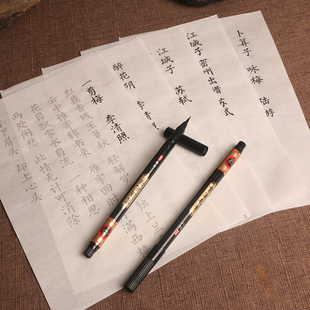 卜算子 咏梅 陆游
江城子 密州出猎 苏轼
江城子 苏轼
醉花阴 李清
一剪梅 李清照
轻解罗 独上兰
云中谁寄锦书来 雁字回时 满西楼
花自飘零水自流 一种相思
闲愁 此情 计可消除
下眉头 却上心头